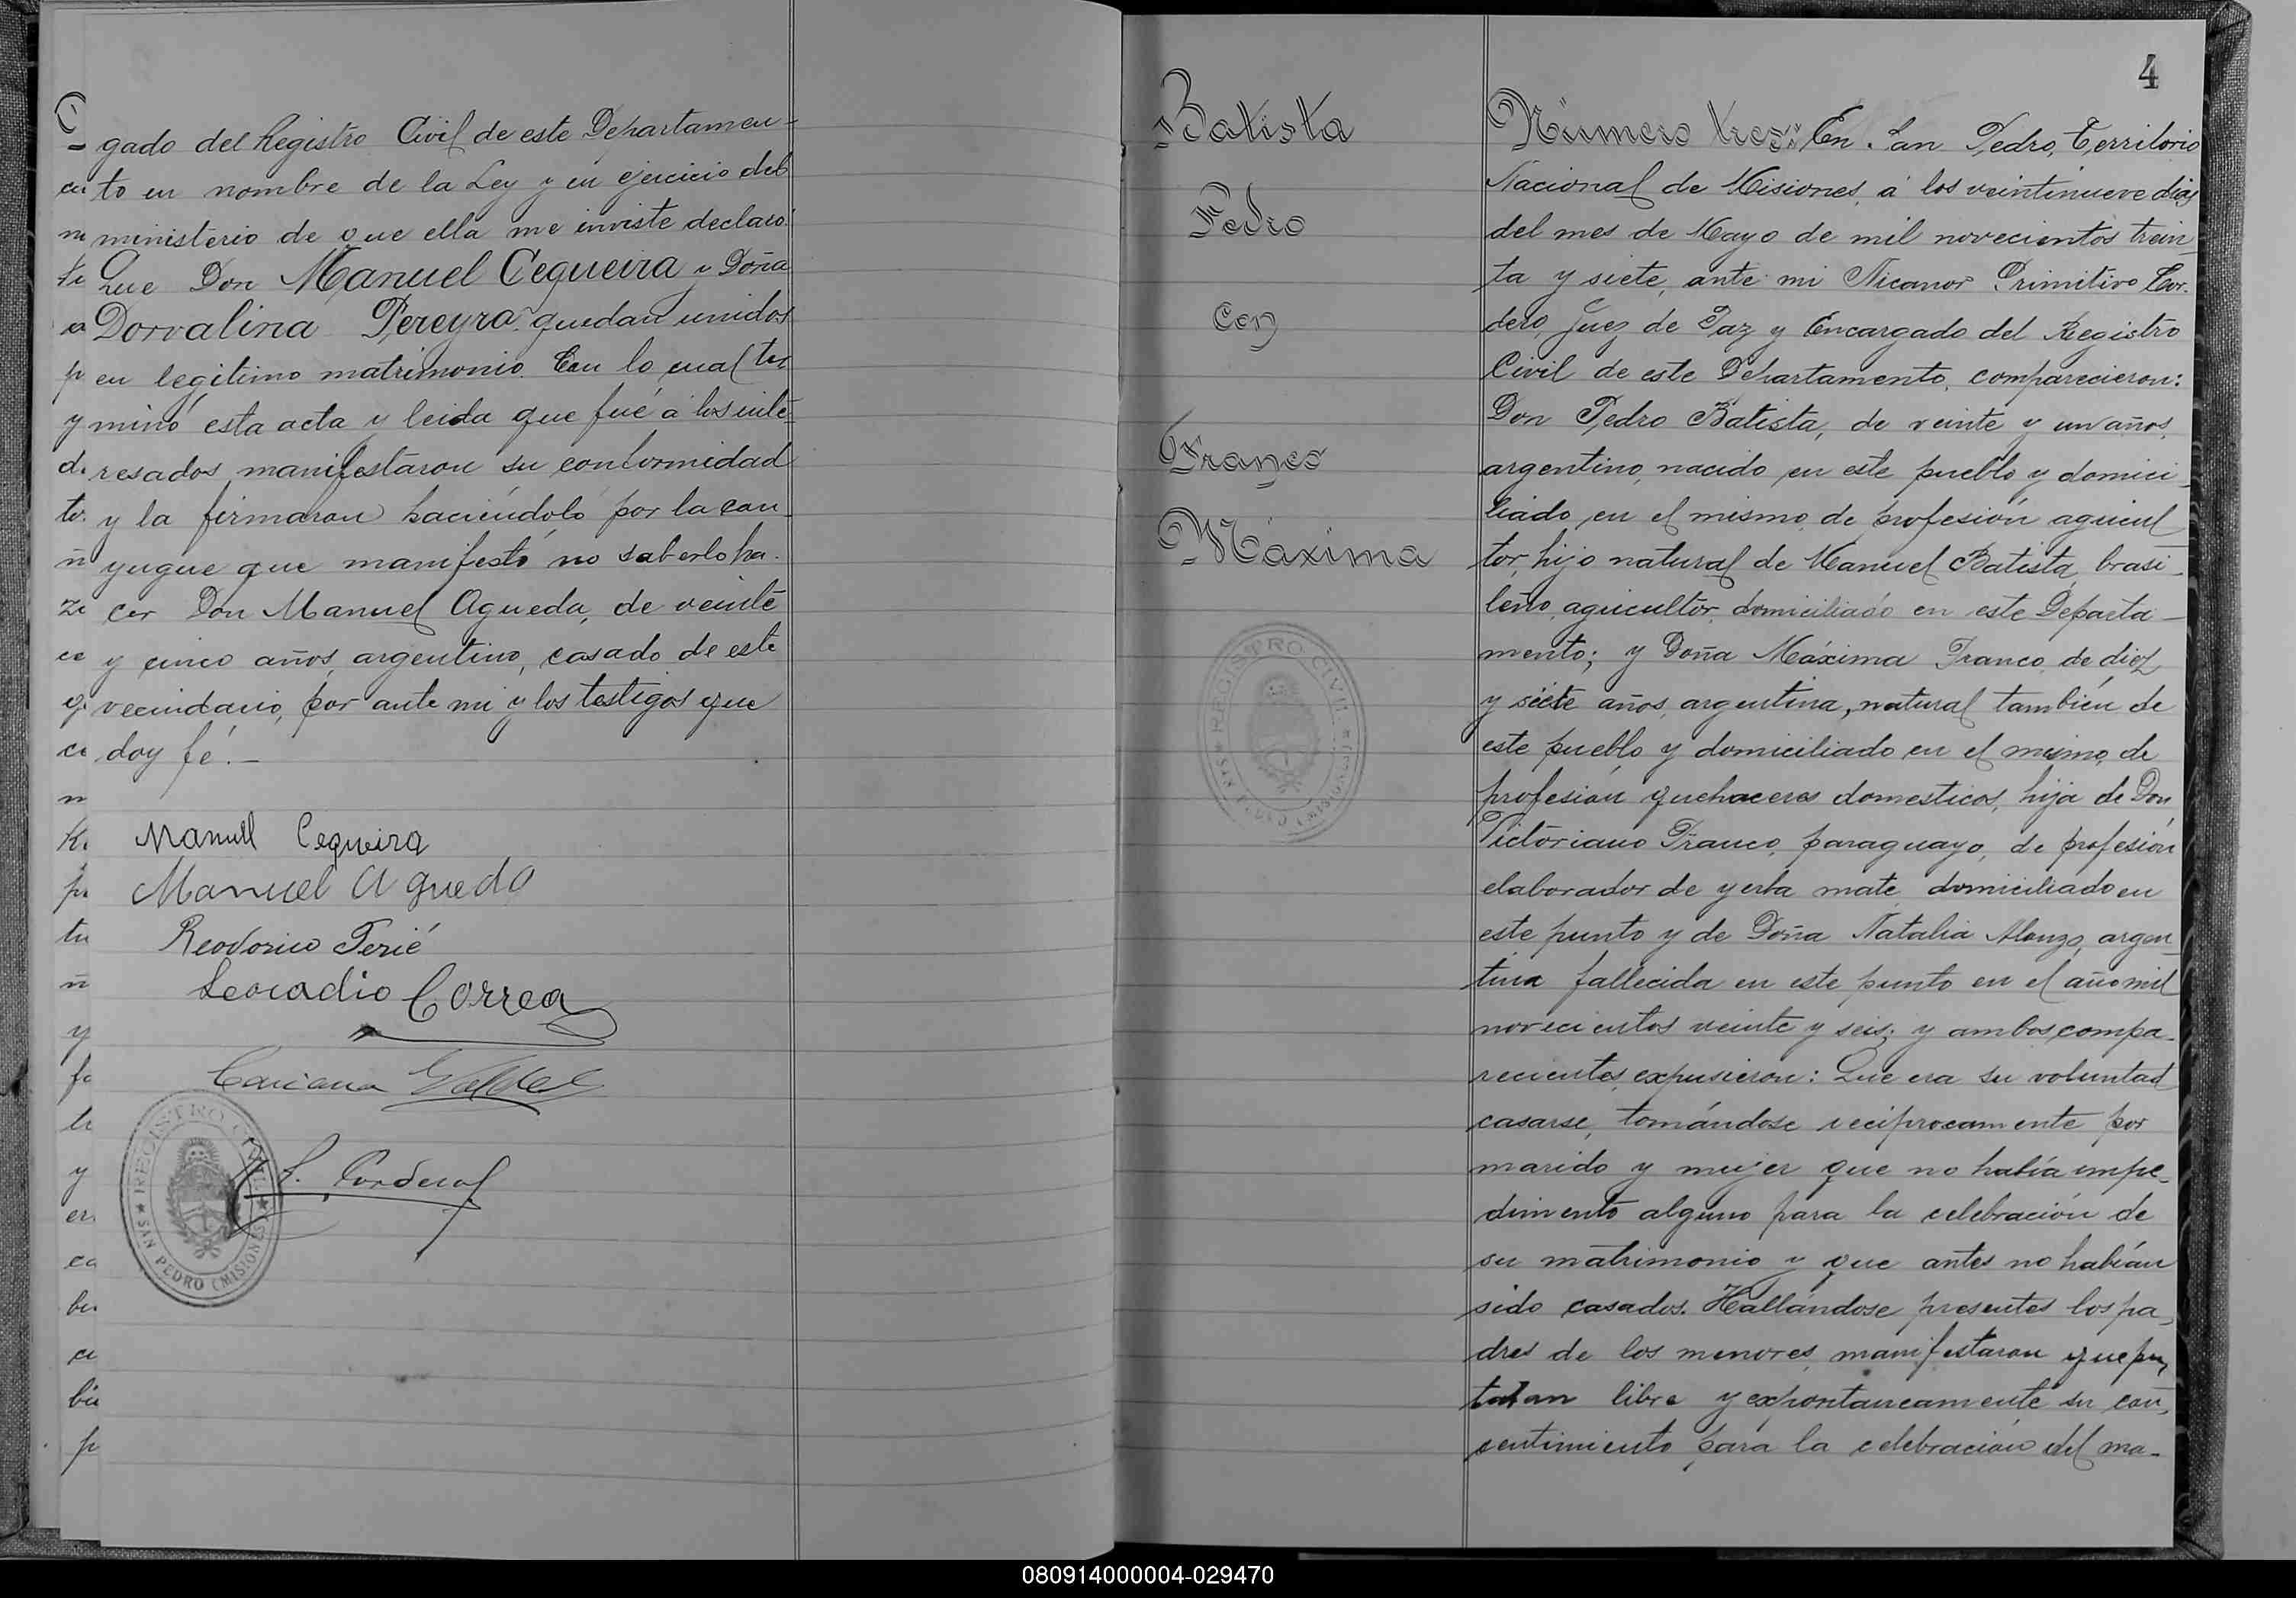 gado del Registro Civil de este Departamen-
to en nombre de la Ley y en ejercicio del
ministerio de que ella me inviste declaro:
Que Don Manuel Cequeira y Doña
Dorvalina Pereyra quedan unidos
en legitimo matrimonio. Con lo cual ter
minó esta acta y leida que fué á los inte-
resados manifestaron su conformidad
y la firmaron haciéndolo por la con-
yugue que manifestó no saberlo ha-
cer Don Manuel Agueda, de veinte
y cinco años, argentino, casado de este
vecindario, por ante mi y los testigos que
doy fé.-
Manuel Cequeira
Manuel Aguedo
Reodorico Ferié
Leocadio Correa
REGISTRO CIVIL
SAN PEDRO (MISIONES)
Corderof
4
Batista
Pedro
con
Franco
Máxima
REGISTRO CIVIL
SAN PEDRO (MISIONES)
Número tres: En San Pedro, Territorio
Nacional de Misiones, á los veintinueve dias
del mes de Mayo de mil novecientos trein-
ta y siete, ante mi Nicanor Primitivo Cor-
dero, Juez de Paz y Encargado del Registro
Civil de este Departamento, comparecieron:
Don Pedro Batista, de veinte y un años,
argentino, nacido en este pueblo y domici-
liado en el mismo, de profesión agricul
tor, hijo natural de Manuel Batista, brasi-
leño, agricultor, domiciliado en este Departa-
mento; y Doña Máxima Franco, de diez
y siete años, argentina, natural también de
este pueblo y domiciliado en el mismo, de
profesión quehaceres domesticos, hija de Don
Victoriano Franco, paraguayo, de profesión
elaborador de yerba mate, domiciliado en
este punto y de Doña Natalia Alonzo, argen-
tina fallecida en este punto en el año mil
novecientos veinte y seis; y ambos compa-
recientes expusieron: Que era su voluntad
casarse, tomándose reciprocamente por
marido y mujer que no había impe-
dimento alguno para la celebración de
su matrimonio y que antes no habían
sido casados. Hallándose presentes los pa-
dres de los menores, manifestaron que pres
taban libre y expontaneamente su con-
sentimiento para la celebración del ma-
080914000004-029470